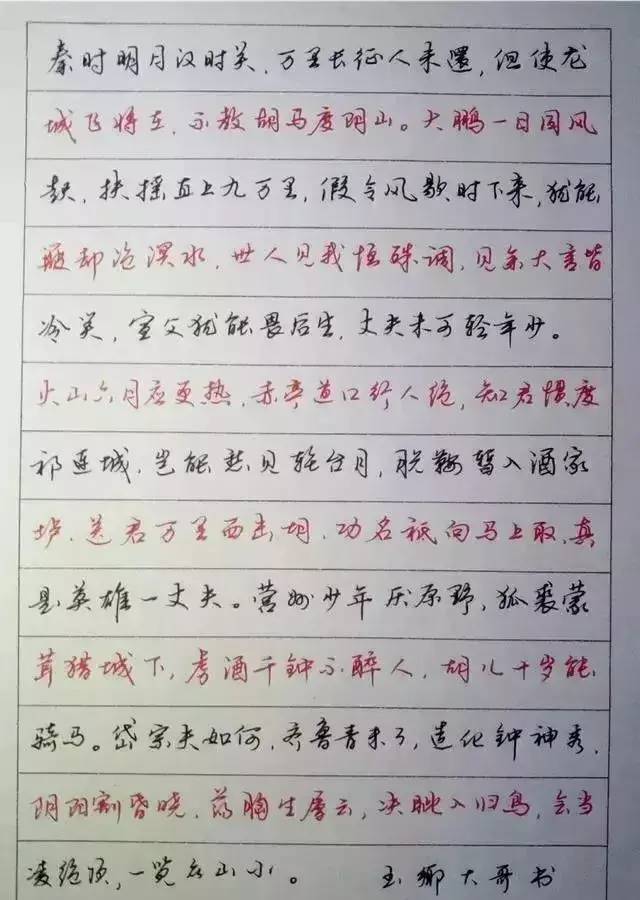 秦时明月汉时关，万里长征人未还，但使龙
城飞将在，不教胡马度阴山。大鹏一日同风
起，扶摇直上九万里，假令风歇时下来，犹能
簸却沧溟水，世人见我恒殊调，见余大言皆
冷笑，宣父犹能畏后生，丈夫未可轻年少。
火山六月应更热，赤亭道口行人绝，知君惯度
祁连城，岂能愁见轮台月，脱鞍暂入酒家
垆，送君万里西击胡，功名祗向马上取，真
是英雄一丈夫。营州少年厌原野，狐裘蒙
茸猎城下，虏酒千钟不醉人，胡儿十岁能
骑马。岱宗夫如何，齐鲁青未了，造化钟神秀，
阴阳割昏晓，荡胸生层云，决眦入归鸟，会当
凌绝顶，一览众山小。 玉乡大哥书